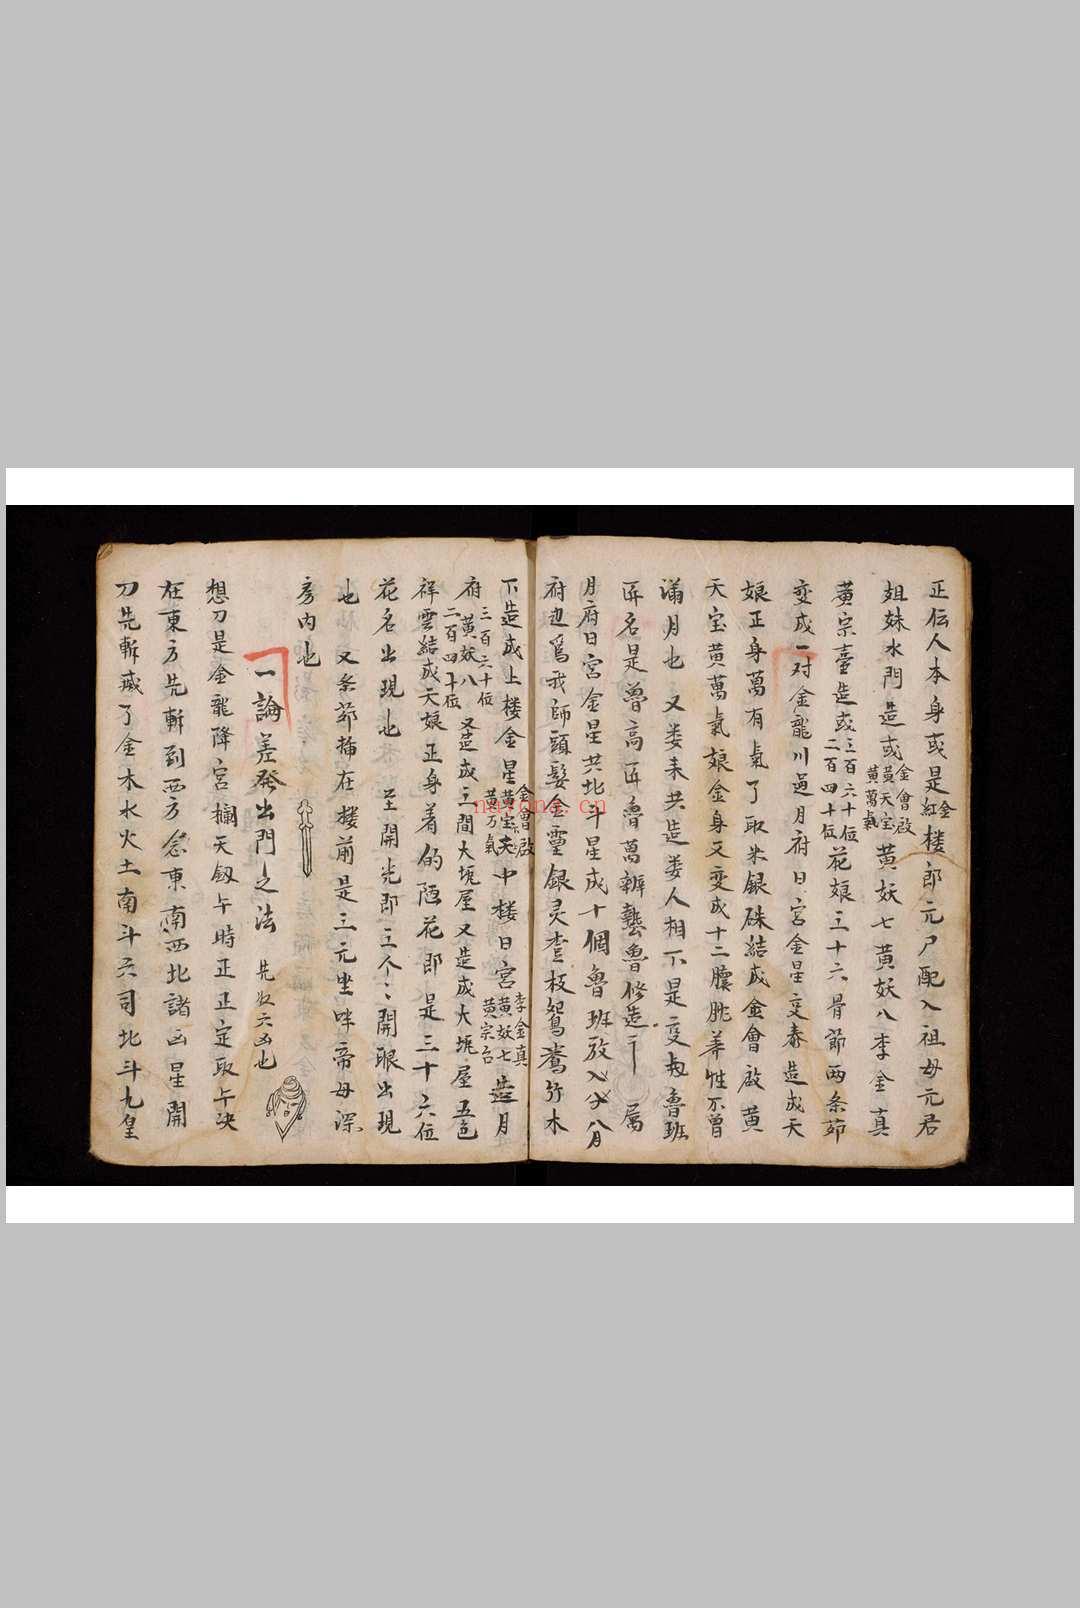 正伝人本身或是紅金楼郎元尸配入祖母元君
姐妹水門造或金會啟黃天宝黃萬氣黃妖七黃妖八李金真
黃宗臺造或三百六十位二百四十位花娘三十六骨節兩条茆
变成一对金龍川過月府日宮金星交泰造成天
娘正身萬有氣了取米銀硃結成金會啟黃
天宝黃萬氣娘金身又变成十二臕胱养性不曾
滿月也又娄来共造娄人相下是变为魯班
匠名是曾高匠魯萬辦藝魯修造 屬
月府日宮金星共北斗星成十個魯班放入 八月
府边為我師頭髮金靈銀灵杢枝鴛鴦竹木
下造成上楼金星金會啟黃宝夫黃万氣中楼日宮李金真黃妖七黃宗台造月
府黃妖八三百六十位二百四十位又造成三間大垝屋又造成大垝屋五色
祥雲結成天娘正身着的陋花郎是三十六位
花名出現也至開光郎三个〻開眼出現
也又条茆插在楼前是三元坐咩帝母深
房内也
一論差発出門之法 先收六凶也
想刀是金龍降宮攔天劔午時正正定取午决
在東方先斬到西方念東南西北諸凶星開
刀先斬滅了金木水火土南斗六司北斗九皇
nayona.cn